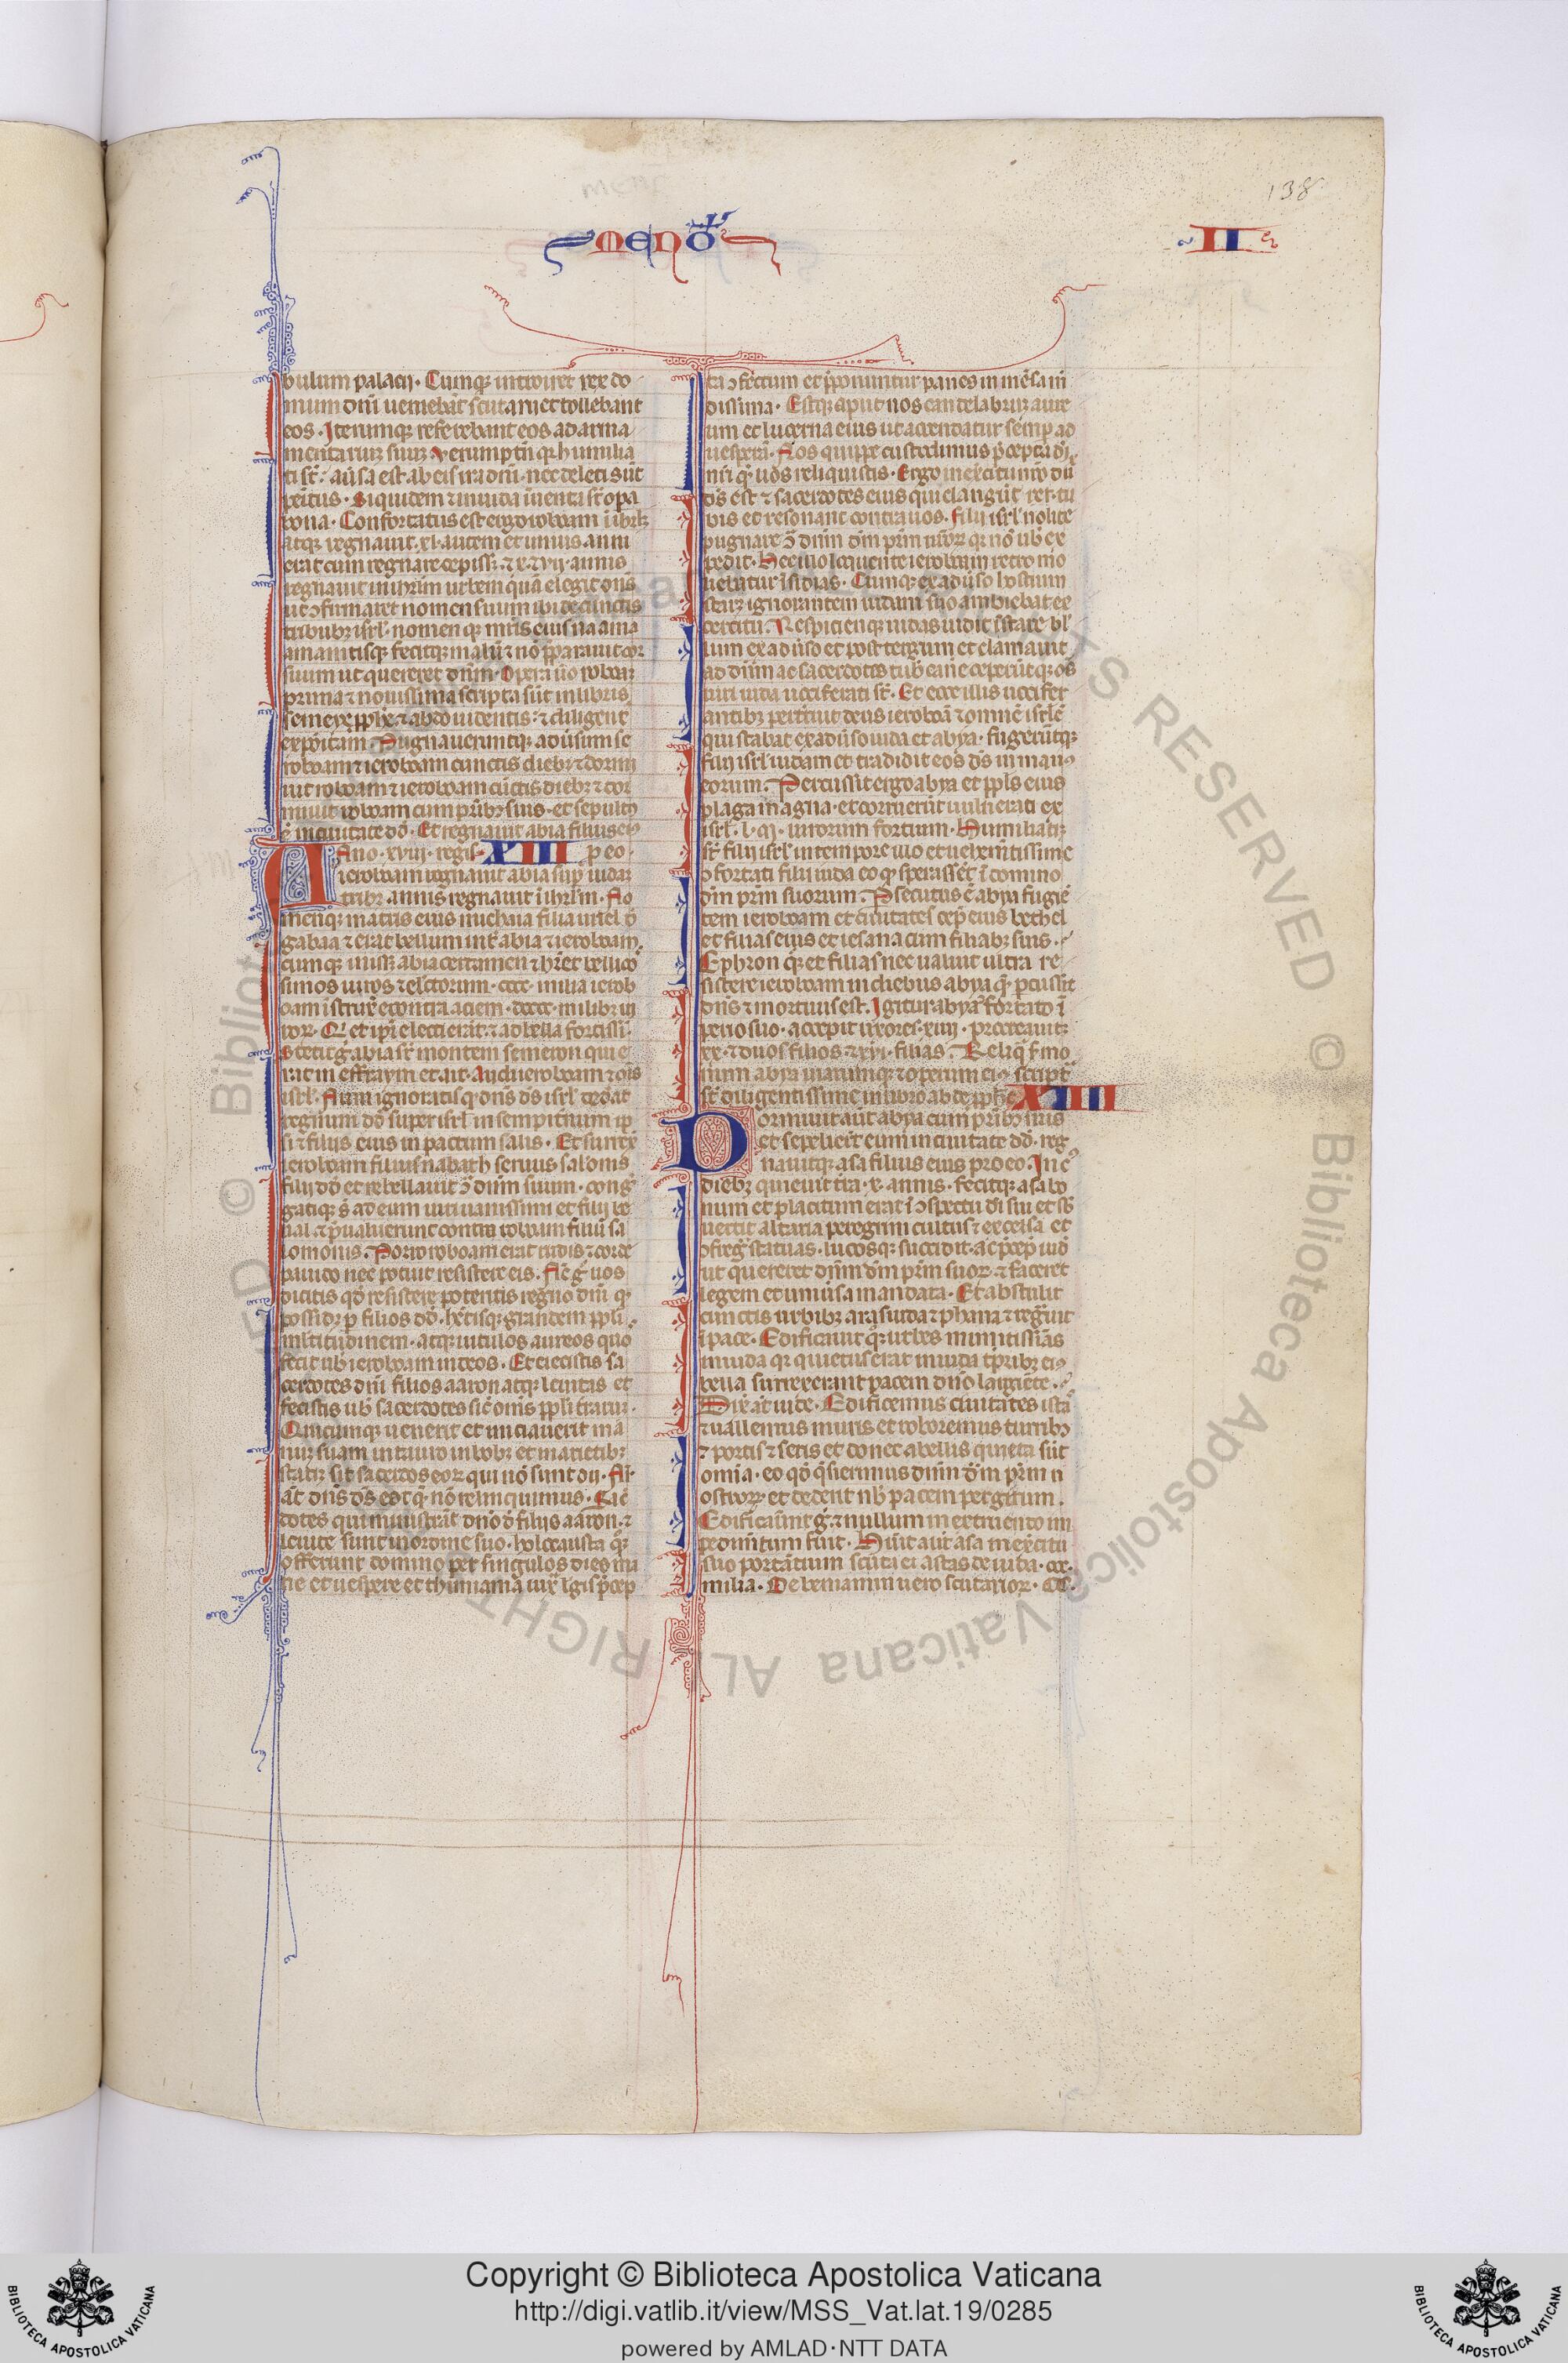 138
menō
II
bulum palacij. Cumq; introiret rex do
mum dñi veniebāt scutarij et tollebant
eos. Iterumq; referebant eos ad arma
mentarium suum. Verumptñ q; humilia
ti st: aūsa est ab eis ira dñi. nec deleti sūt
penitus. Siquidem ⁊ in iuda inventa st opa
bona. Confortatus est ergo roboam i ihrlm
atq; regnavit. xl. autem et unius anni
erat cum regnare cepiss; ⁊ x. ⁊ vij. annis
regnavit in ihrlm urbem quā elegit dñs
ut ↄfirmaret nomen suum ibi de cunctis
tribubz isrl. nomen q; mris eius naama
amanitis. fecitq; malū ⁊ nō p̄paravit cor
suum ut quereret dñm. Opera ūo roboam
prima ⁊ novissima scripta sūt in libris
semeye pphe ⁊ abdo videntis: ⁊ diligent
exposita. Pugnaveruntq; adūsum se
roboam ⁊ ieroboam cunctis diebz ⁊ dormi
vit roboam ⁊ ieroboam cūctis diebz ⁊ dor
mivit roboam cum patribz suis. et sepultus
ē in civitate dd. Et regnavit abia filius eius
XIII p eo.
Anno. xviij. regis
ieroboam regnavit abia sup iudam
tribz annis regnavit i ihrlm. No
menq; matris eius michaia filia uriel d
gabaa ⁊ erat bellum inter abia ⁊ ieroboam.
cumq; iniss; abia certamen ⁊ hret bellico
simos viros ⁊ electorum. cccc. milia ierob
oam istruxit econtra aciem. dccc. milibz vi
ror. Qi et ipi electi erāt ⁊ ad bella fortissi.
Stetit g abia sr montem semeron qui e
rat in effraym et ait. Audi ieroboam ⁊ oīs
isrl. Num ignoratis q dñs ds isrl dedat
regnum dd super isrl in sempiternum ip
si ⁊ filijs eius in pactum salis. Et surrex
ieroboam filius nabath servus salomis
filij dd et rebellavit ↄ dūm suum. cong
gatiq; s ad eum viri vanissimi et filij be
lial ⁊ p̄valuerunt contra roboam filiū sa
lomonis. Porro roboam erat rudis ⁊ corde
pavido nec potuit resistere eis. Nc g vos
dicitis qd resistere potestis regno dñi q
possidet p filios dd. hētisq; grandem ppli
multitudinem. atq; vitulos aureos quos
fecit vob ieroboam in deos. Et eiecistis sa
cerdotes dñi filios aaron atq; levitas et
fecistis vob sacerdotes sic omīs ppli terrarum.
Quicumq; venerit et iniciaverit ma
num suam in tauro in bobz et in arietibz
statim fit sacerdos eor qui nō sunt dij. Nr
at dñs ds est q nō relinquimus. Sac
dotes qui ministrāt dño d filijs aaron. ⁊
levite sunt in ordine suo. holocausta q
offerunt domino per singulos dies ma
ne et vespere et thimiama iux legis p̄cep
ta ↄfectum et p̄ponuntur panes in mēsa m
dissima. Estq; aput nos candelabrum aure
um et lucerna eius ut accendatur semp ad
vesperā. Nos quippe custodimus p̄cepta di
nri q vos reliquistis. Ergo in exercitu nro du
ds est ⁊ sacerdotes eius qui clangūt
bis et resonant contra vos. filij isrl nolite
pugnare ↄ dnm dm prm vror q nō vob ex
pedit. Hec illo loquente ieroboam retro mo
liebatur isidias. Cumq; ex adūso hostium
staret ignorantem iudam suo ambiebat ex
ercitu. Respiciensq; iudas vidit istare bl
lum ex adūso et post tergum et clamavit
ad dnm ac sacerdotes tubis canere ceperūt
viri iuda vociferati st. Et ecce illis vocifer
antibz perterruit deus ieroboā ⁊ omnē isrlē
qui stabat ex adūso iuda et abya. fugerūtq;
filij isrl iudam et tradidit eos ds in manus
eorum. Percussit ergo abya et ppls eius
plaga magna. et corruerūt vulnerati ex
isrl. l. m. virorum fortium. Humiliatiq;
st filij isrl in tempore illo et vehemētissime
ↄfortati filij iuda eo q sperassēt i domino
dm prm suorum. Psecutus ē abya fugiē
tem ieroboam et civitates cep eius bethel
et filias eius et iesana cum filiabz suis.
Ephron q et filias nec valuit ultra re
sistere ieroboam in diebus abya q percussit
dñs ⁊ mortuus est. Igitur abya ↄfortato i
perio suo. accepit uxores. xiiij. procreavit
xx. ⁊ duos filios ⁊ xvi. filias. Reliq smo
num abya viarumq; ⁊ operum eius scripta
st diligentissime in libro abdo pphe
XIIII
Dormivit aut abya cum patribz suis
et sepelierūt eum in civitate dd. reg
navitq; asa filius eius pro eo. In cuius
diebz quievit tra. x. annis. fecitq; asa bo
num et placitum erat i ↄspectu di sui et sb
vertit altaria peregrini cultus ⁊ excelsa et
ↄfregit statuas. lucosq; succidit. ac precepit iude
ut quereret dnm dm prm suor. ⁊ faceret
legem et universa mandata. Et abstulit
cunctis urbibz aras iuda ⁊ phana ⁊ regnavit
ipace. Edificavit q urbes munitissimas
in iuda q quietus erat in iuda tpribz eius
bella surrexerant pacem dño largiente.
Dixit iude. Edificemus civitates istas
⁊ vallemus muris et roboremus turribz
⁊ portis ⁊ seris et donec a bellis quieta sūt
omia. eo qd qsierimus dnm dm prm n
ostrorum et dederit nob pacem per girum.
Edificaverunt g ⁊ nullum in extruendo im
pedimtum fuit. Huit aut asa in exercitu
suo portātium scuta et astas de iuda. ccc.
milia. De beniamin vero scutarior. cc.
Copyright © Biblioteca Apostolica Vaticana
http://digi.vatlib.it/view/MSS_Vat.lat.19/0285
powered by AMLAD·NTT DATA
BIBLIOTECA APOSTOLICA VATICANA
BIBLIOTECA APOSTOLICA VATICANA